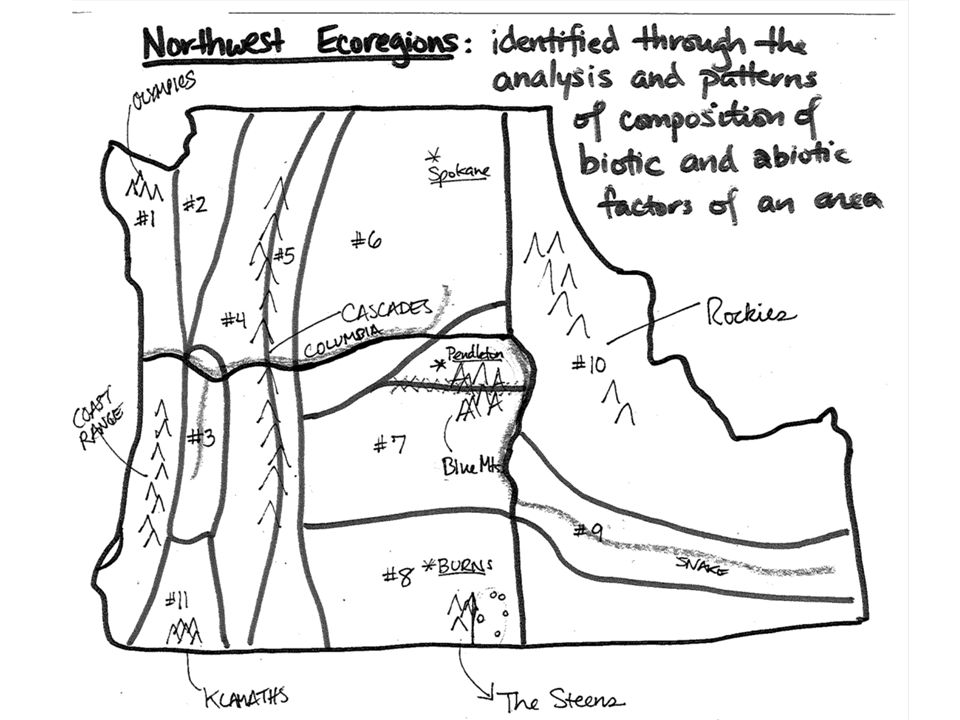 Northwest Ecoregions: identified through the
analysis and patterns
of composition of
biotic and abiotic
factors of an area
OLYMPICS
#1
#2
* Spokane
#5
#6
#4
CASCADES
COLUMBIA
Rockies
* Pendleton
#10
COAST
RANGE
#3
#7
Blue Mts
#9
SNAKE
#8
*BURNS
#11
KLAMATHS
The Steens